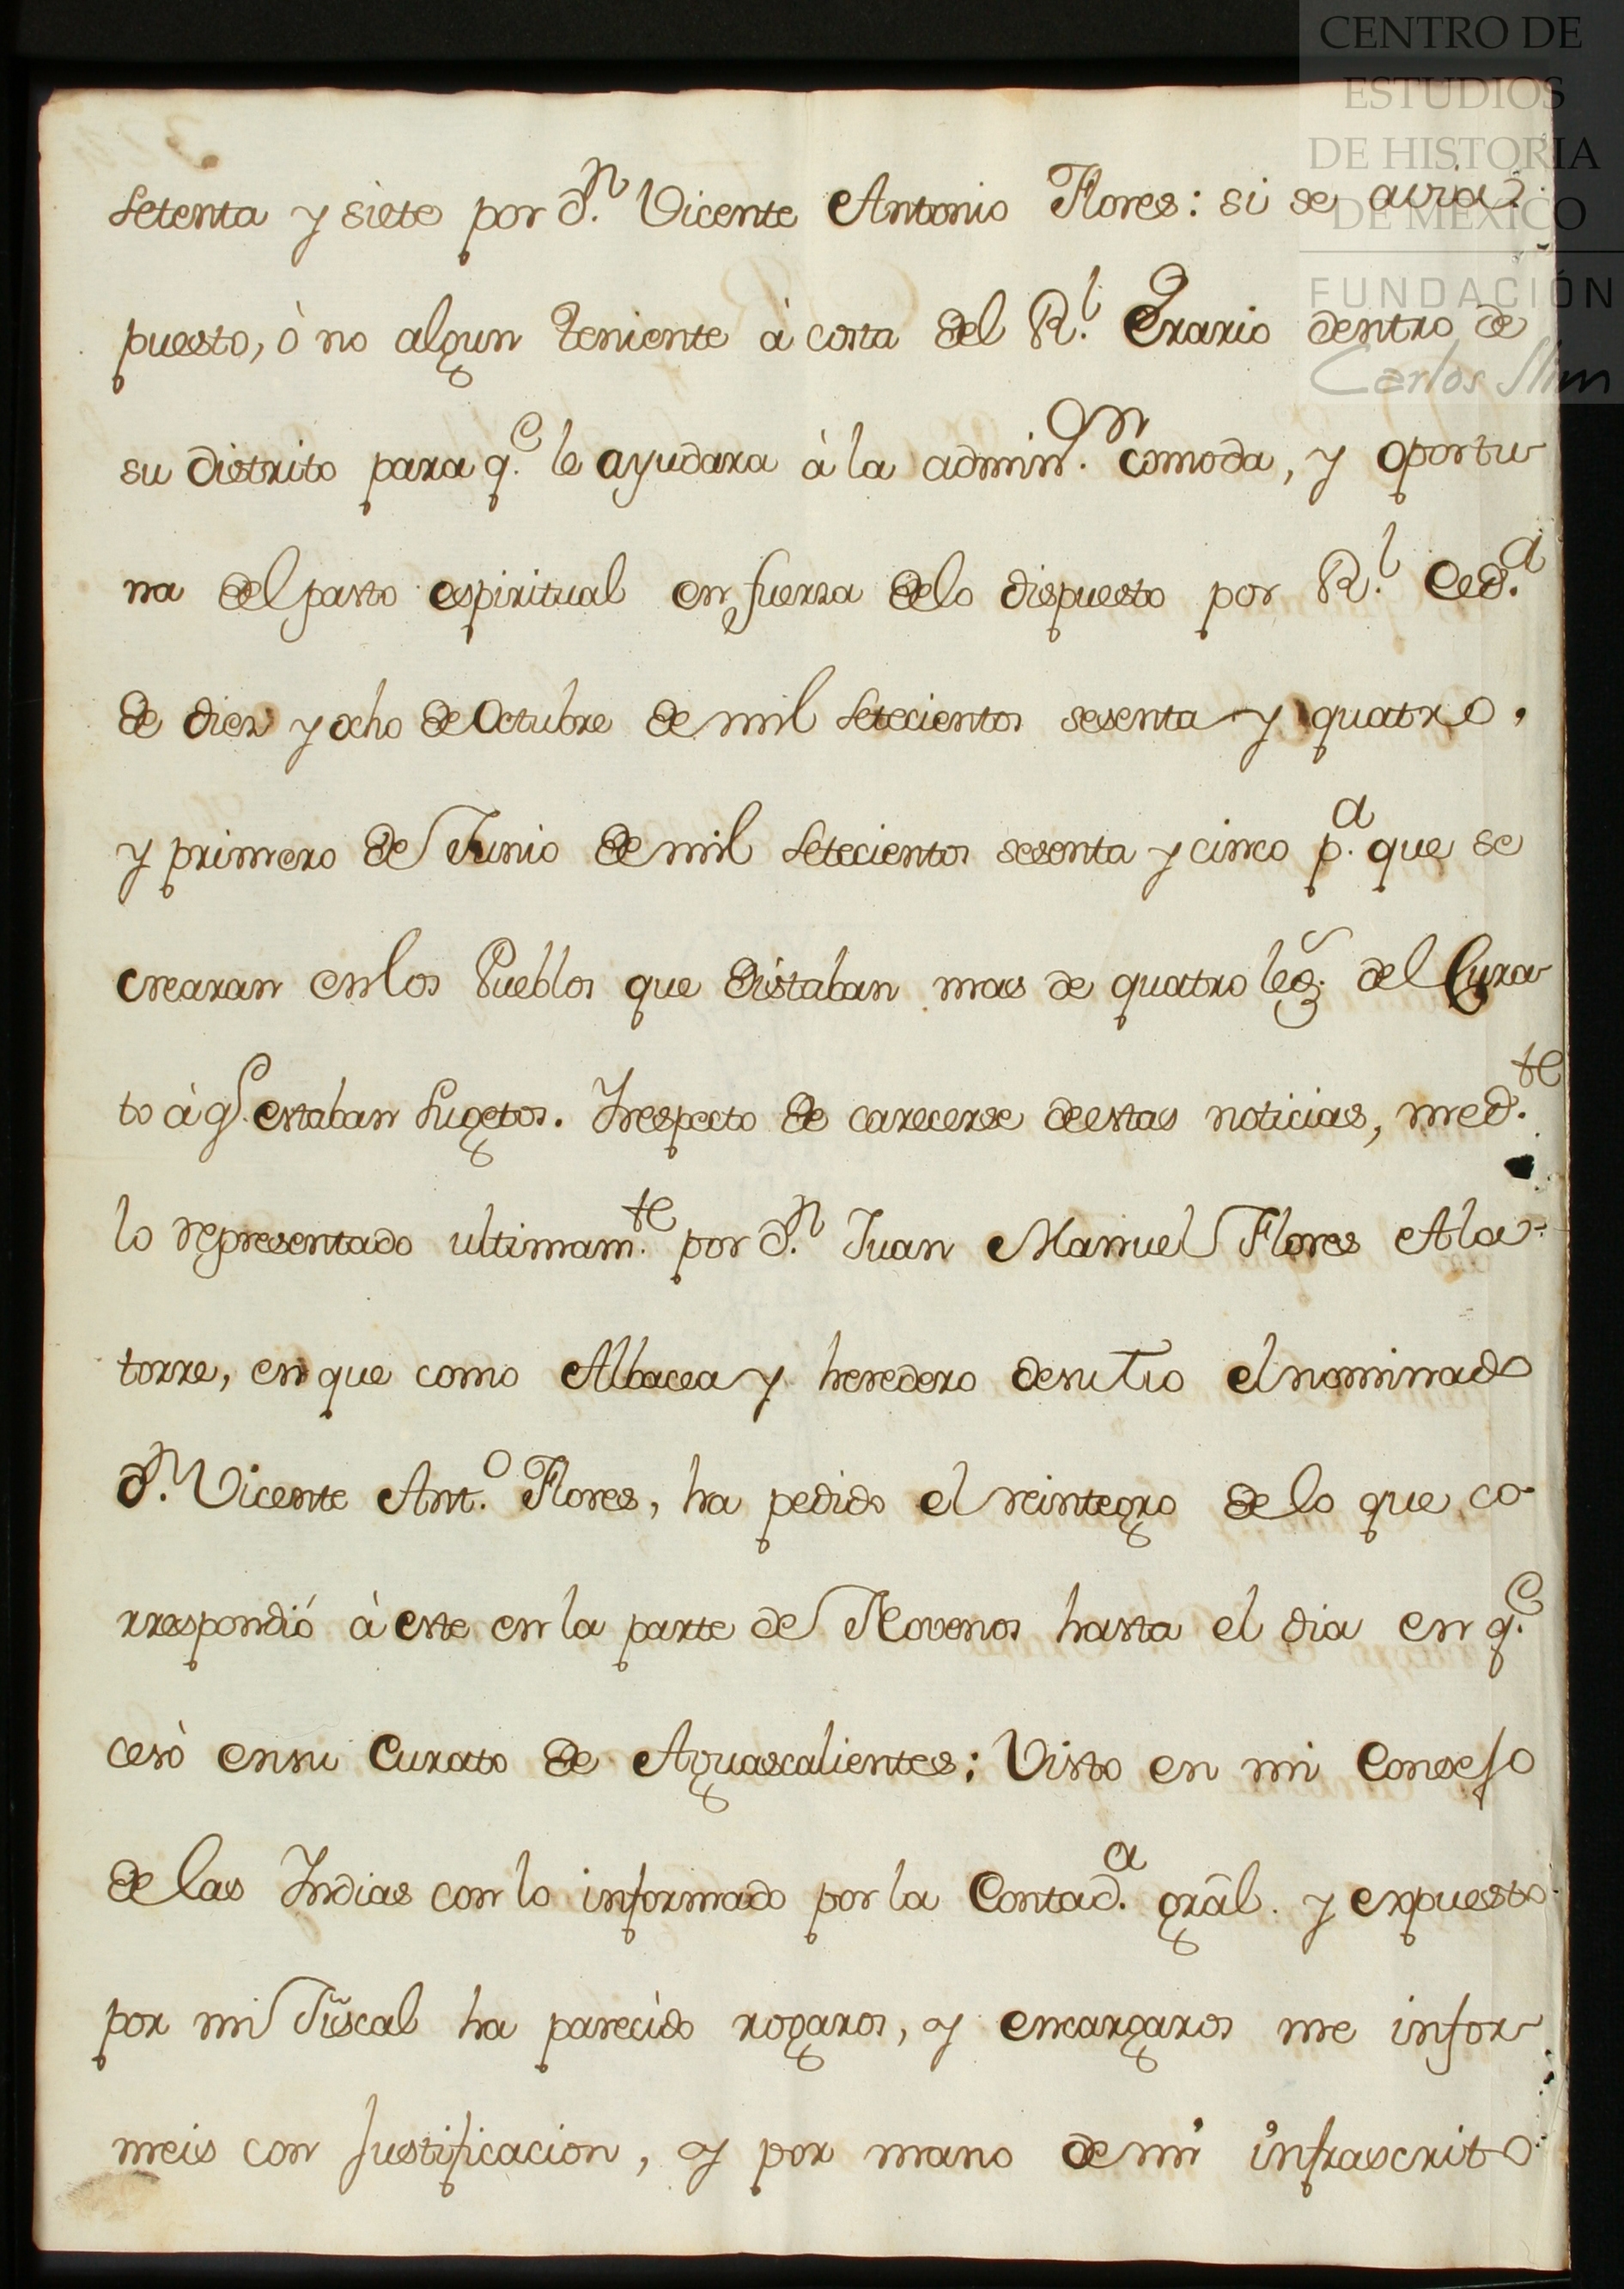 CENTRO DE
ESTUDIOS
DE HISTORIA
DE MÉXICO
FUNDACIÓN
Carlos Slim
setenta y siete por d.ⁿ Vicente Antonio Flores: si se avia
puesto, ò no algun Teniente à costa del R.ˡ Erario dentro de
su distrito para q.ᵉ le ayudara à la admin.ᵒⁿ comoda, y oportu-
na del pasto espiritual en fuerza de lo dispuesto por R.ˡ Ced.ᵃ
de diez y ocho de Octubre de mil setecientos sesenta y quatro,
y primero de Junio de mil setecientos sesenta y cinco p.ᵃ que se
crearan en los Pueblos que distaban mas de quatro leg.ˢ del Cura-
to à q.ᵉ estaban sugetos. Y respecto de carecerse de estas noticias, med.ᵗᵉ
lo representado ultimam.ᵗᵉ por d.ⁿ Juan Manuel Flores Ala-
torre, en que como Albacea y heredero de su tio el nominado
d.ⁿ Vicente Ant.ᵒ Flores, ha pedido el reintegro de lo que co-
rrespondió à este en la parte de Novenos hasta el dia en q.ᵉ
cesò en su Curato de Aguascalientes: Visto en mi Consejo
de las Indias con lo informado por la Contad.ᵃ grāl. y expuesto
por mi Fiscal ha parecido rogaros, y encargaros me infor-
meis con justificacion, y por mano de mi infrascrito